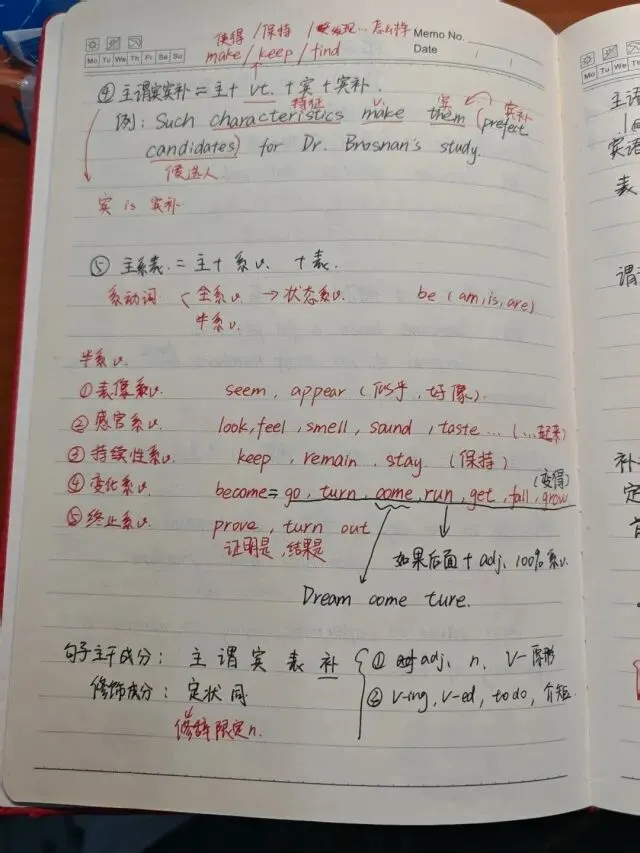 使得/保持/发现…怎么样
Memo No.
Mo Tu We Th Fr Sa Su
make/keep/find
Date
④ 主谓宾宾补 = 主 + vt. + 宾 + 宾补.
特征 v. 宾 宾补
例: Such characteristics make them (prefect
candidates) for Dr. Brosnan's study.
候选人.
宾 is 宾补.
⑤ 主系表 = 主 + 系v. + 表.
系动词 全系v. → 状态系v. be (am, is, are)
半系v.
半系v.
① 表像系v. seem, appear (似乎, 好像).
② 感官系v. look, feel, smell, sound, taste … (…起来)
③ 持续性系v. keep, remain, stay. (保持)
(变得)
④ 变化系v. become = go, turn, come, run, get, fall, grow
⑤ 终止系v. prove, turn out
证明是, 结果是
如果后面 + adj, 100% 系v.
Dream come ture.
句子主干成分: 主 谓 宾 表 补 ① adj、n、V-原形
修饰成分: 定 状 同 ② V-ing, V-ed, to do, 介短.
限定n.
主语
宾语
表
谓
补
定